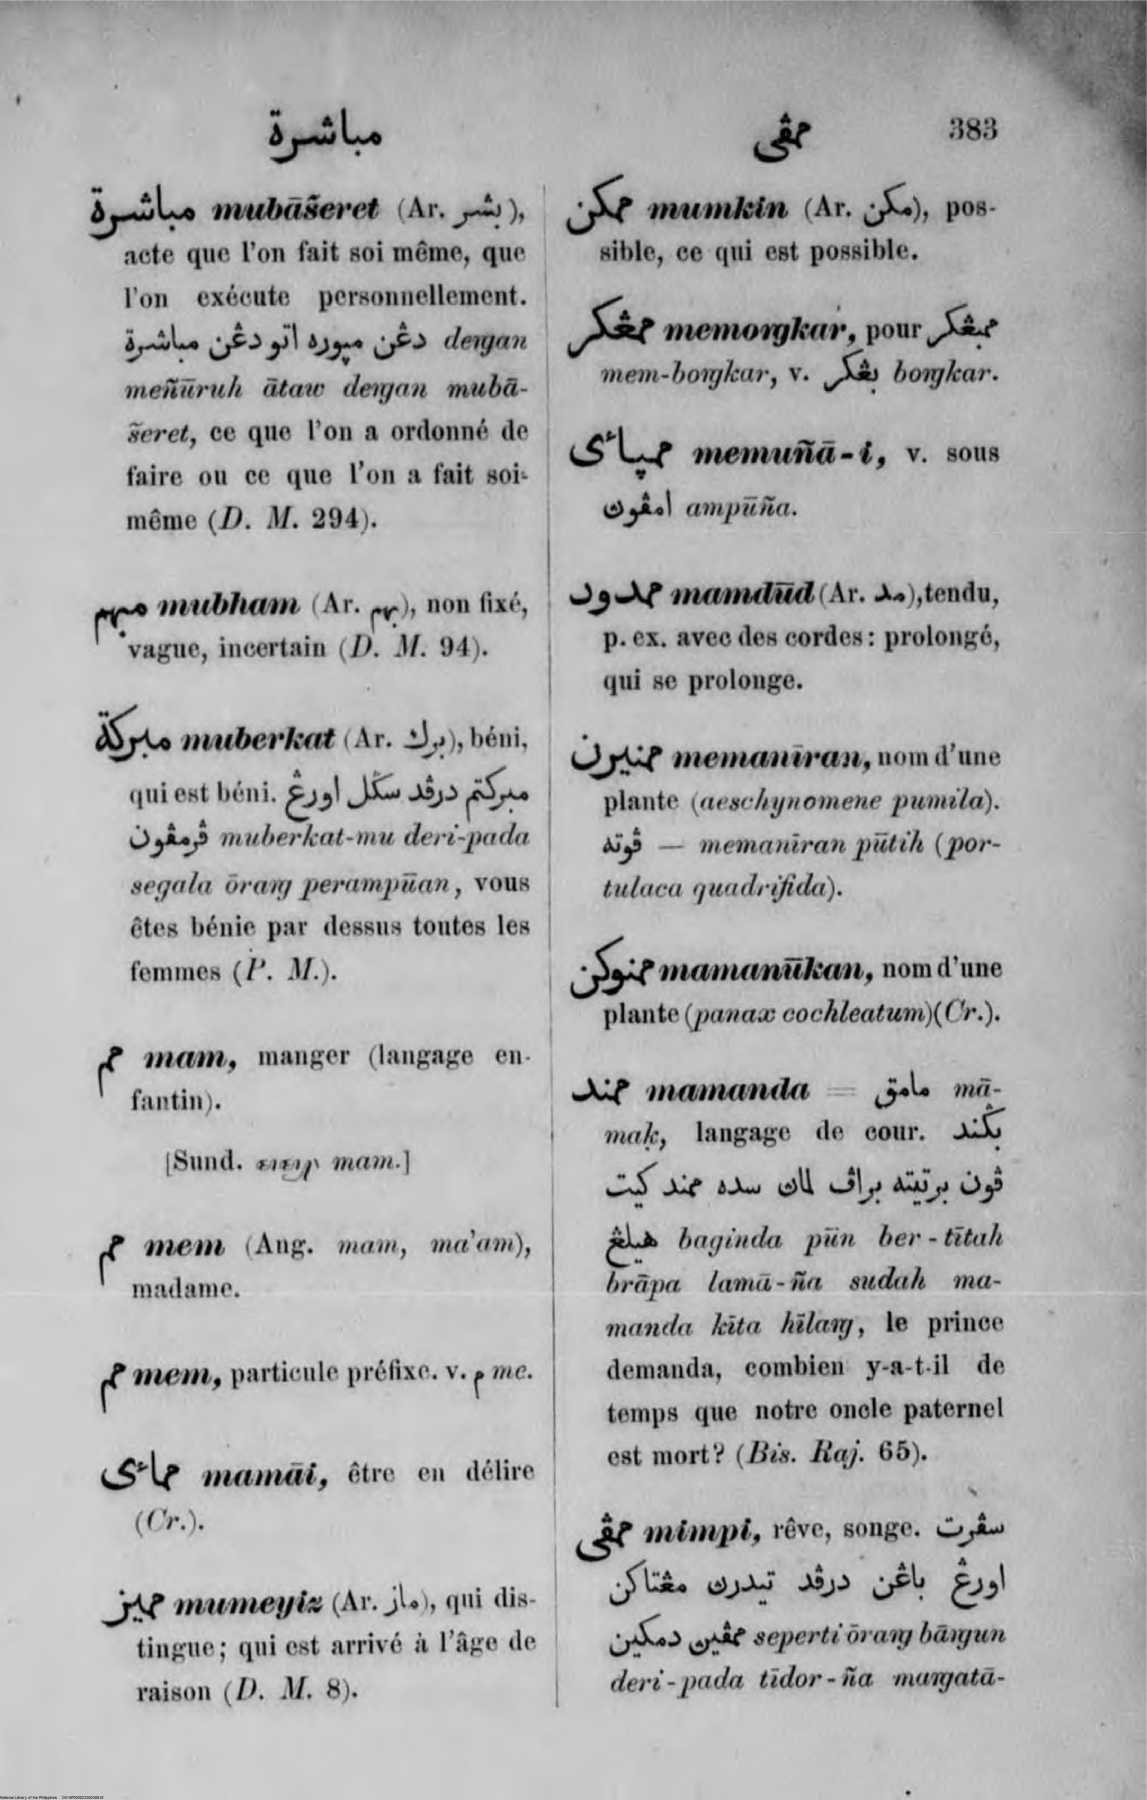 مباشرة
ممڤى
383
مباشرة mubāšeret (Ar. بشر),
acte que l'on fait soi même, que
l'on exécute personnellement.
دڠن مڽوره اتو دڠن مباشرة deŋan
meñūruh ātaw deŋan mubā-
šeret, ce que l'on a ordonné de
faire ou ce que l'on a fait soi-
même (D. M. 294).
مبهم mubham (Ar. بهم), non fixé,
vague, incertain (D. M. 94).
مبركة muberkat (Ar. برك), béni,
qui est béni. مبركتم درڤد سݢل اورڠ
ڤرمڤون muberkat-mu deri-pada
segala ōraŋ perampūan, vous
êtes bénie par dessus toutes les
femmes (P. M.).
مم mam, manger (langage en-
fantin).
[Sund. mam.]
مم mem (Ang. mam, ma'am),
madame.
مم mem, particule préfixe. v. م me.
ممائى mamāi, être en délire
(Cr.).
مميز mumeyiz (Ar. ماز), qui dis-
tingue; qui est arrivé à l'âge de
raison (D. M. 8).
ممكن mumkin (Ar. مكن), pos-
sible, ce qui est possible.
ممڠكر memoŋkar, pour ممبڠكر
mem-boŋkar, v. بڠكر boŋkar.
ممڽائى memuñā-i, v. sous
امڤون ampūña.
ممدود mamdūd (Ar. مد), tendu,
p. ex. avec des cordes: prolongé,
qui se prolonge.
ممنيرن memanīran, nom d'une
plante (aeschynomene pumila).
ڤوته — memanīran pūtih (por-
tulaca quadrifida).
ممنوكن mamanūkan, nom d'une
plante (panax cochleatum)(Cr.).
ممند mamanda = مامق mā-
maḳ, langage de cour. بݢند
ڤون برتيته براڤ لمان سده ممند كيت
هيلڠ baginda pūn ber-tītah
brāpa lamā-ña sudah ma-
manda kīta hīlaŋ, le prince
demanda, combien y-a-t-il de
temps que notre oncle paternel
est mort? (Bis. Raj. 65).
ممڤى mimpi, rêve, songe. سڤرت
اورڠ باڠن درڤد تيدرن مڠتاكن
ممڤين دمكين seperti ōraŋ bāŋun
deri-pada tīdor-ña maŋatā-